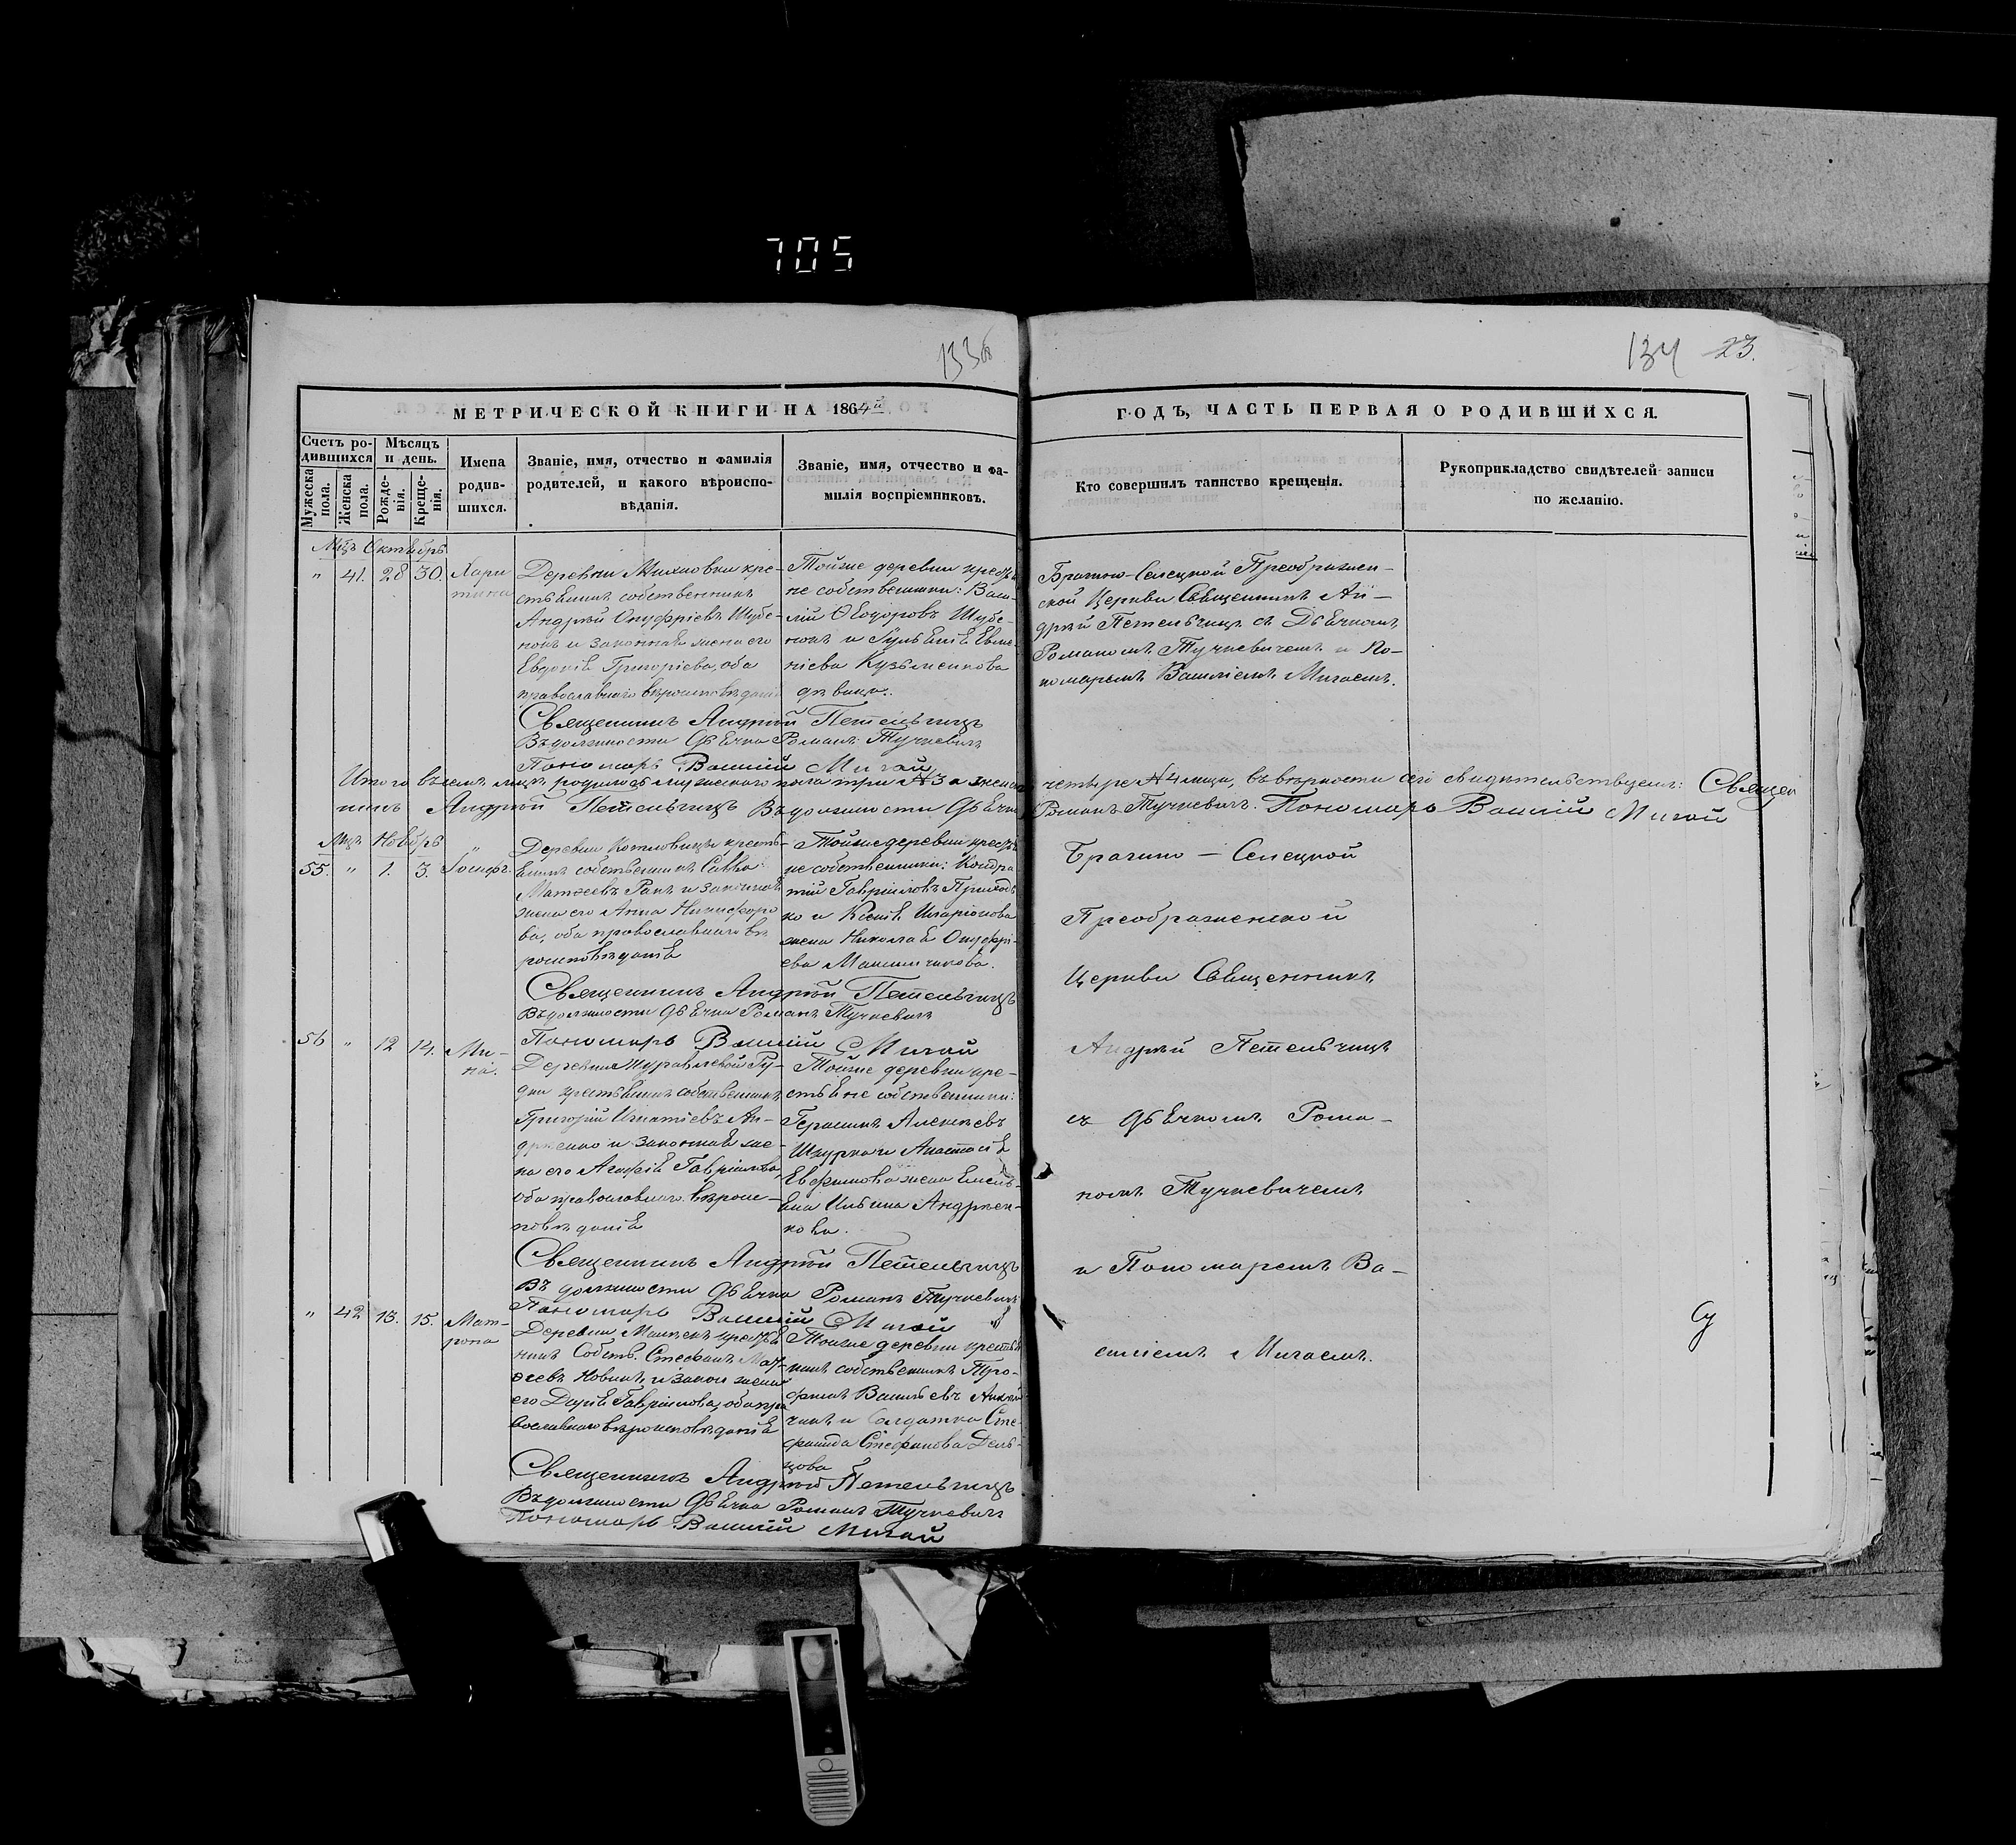 705
133об
134 23.
МЕТРИЧЕСКОЙ КНИГИ НА 1864й
ГОДЪ, ЧАСТЬ ПЕРВАЯ О РОДИВШИХСЯ.
Счетъ ро-
дившихся
Мужеска
пола.
Женска
пола.
Мѣсяцъ
и день.
Рожде-
нія.
Креще-
нія.
Имена
родив-
шихся.
Званіе, имя, отчество и фамилія
родителей, и какого вѣроиспо-
вѣданія.
Званіе, имя, отчество и фа-
милія воспріемниковъ.
Кто совершилъ таинство крещенія.
Рукоприкладство свидѣтелей записи
по желанію.
Мцъ Октябрь
" 41. 28 30.
Хари
тина
Деревни кре-
стьянинъ собственникъ
Андрей Онуфріевъ Шубе-
нокъ и законная жена его
Евдокія Григоріева, оба
православнаго вѣроисповѣданія
Тойже деревни крестья
не собственники: Васи-
лій Ѳеодоровъ Шубе-
нокъ и Іуліанія
Кузьменкова
дѣвица.
Брагино-Селецкой Преображен-
ской Церкви Священникъ Ан-
дрей Петельчицъ съ Дьячкомъ
Романомъ Тучкевичемъ и По-
номаремъ Василіемъ Мигаемъ.
Священникъ Андрей Петельчицъ
Въ должности Дьячка Романъ Тучкевичъ
Пономарь Василій Мигай
Итого въ семъ мцѣ родилось мужескаго пола три №3 а женска четыре №4 лица, въ вѣрности сего свидѣтельствуемъ: Священ
никъ Андрей Петельчицъ Въ должности Дьячка Романъ Тучкевичъ. Пономарь Василій Мигай
Мцъ Ноябрь
55. " 1. 3. Іосифъ.
Деревни Котловицъ кресть-
янинъ собственникъ Савва
Матѳеевъ Ракъ и законная
жена его Анна Никифоро
ва, оба православнаго вѣ
роисповѣданія
Тойже деревни крестья
не собственники: Кондра
тій Гавріиловъ Приход
ко и Ксенія Иларіонова
жена Николая Онуфрі-
ева
Брагино-Селецкой
Преображенской
Церкви Священникъ
Андрей Петельчицъ
съ Дьячкомъ Рома-
номъ Тучкевичемъ
и Пономаремъ Ва-
силіемъ Мигаемъ.
Священникъ Андрей Петельчицъ
Въ должности Дьячка Романъ Тучкевичъ
Пономарь Василій Мигай
56 " 12 14.
Ми-
на.
Деревни Журавлевой Гу-
ды крестьянинъ собственникъ
Григорій Игнатіевъ Ан-
дреенко и законная же-
на его Агафія Гавріилова,
оба православнаго вѣроис-
повѣданія
Тойже деревни кре-
стьяне собственники:
Герасимъ Алексѣевъ
Шкурка и Анастасія
Евфимова жена Емель-
яна Ильина Андреен-
кова.
Священникъ Андрей Петельчицъ
Въ должности Дьячка Романъ Тучкевичъ
Пономарь Василій Мигай
" 42 13. 15.
Мат-
рона
Деревни крестья
нинъ Собств. Стефанъ Мат-
ѳеевъ Новикъ, и закон жена
его Дарія Гавріилова, оба пра
вославнаго вѣроисповѣданія
Тойже деревни крестья
нинъ собственникъ Тро-
фимъ Васильевъ
и Солдатка Сте-
фанида Стефанова
Священникъ Андрей Петельчицъ
Въ должности Дьячка Романъ Тучкевичъ
Пономарь Василій Мигай